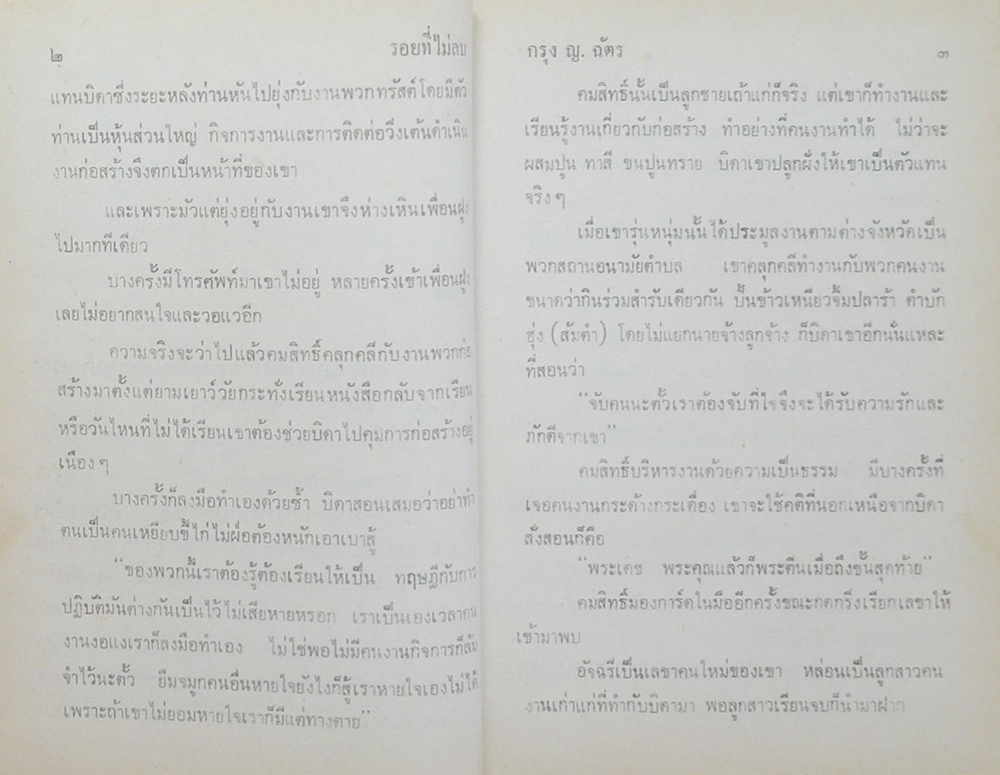 ๒
รอยที่ไม่ลบ
แทนบิดาซึ่งระยะหลังท่านหันไปยุ่งกับงานพวกทรัสต์โดยมีตัว
ท่านเป็นหุ้นส่วนใหญ่ กิจการงานและการติดต่อวิ่งเต้นดำเนิน
งานก่อสร้างจึงตกเป็นหน้าที่ของเขา
และเพราะมัวแต่ยุ่งอยู่กับงานเขาจึงห่างเหินเพื่อนฝูง
ไปมากทีเดียว
บางครั้งมีโทรศัพท์มาเขาไม่อยู่ หลายครั้งเข้าเพื่อนฝูง
เลยไม่อยากสนใจและวอแวอีก
ความจริงจะว่าไปแล้วคมสิทธิ์คลุกคลีกับงานพวกก่อ
สร้างมาตั้งแต่ยามเยาว์วัยกระทั่งเรียนหนังสือกลับจากเรียน
หรือวันไหนที่ไม่ได้เรียนเขาต้องช่วยบิดาไปคุมการก่อสร้างอยู่
เนือง ๆ
บางครั้งก็ลงมือทำเองด้วยซ้ำ บิดาสอนเสมอว่าอย่าทำ
ตนเป็นคนเหยียบขี้ไก่ไม่ฝ่อต้องหนักเอาเบาสู้
“ของพวกนี้เราต้องรู้ต้องเรียนให้เป็น ทฤษฎีกับการ
ปฏิบัติมันต่างกันเป็นไว้ไม่เสียหายหรอก เราเป็นเองเวลาคน
งานงอแงเราก็ลงมือทำเอง ไม่ใช่พอไม่มีคนงานกิจการก็ล้ม
จำไว้นะตั้ว ยืมจมูกคนอื่นหายใจยังไงก็สู้เราหายใจเองไม่ได้
เพราะถ้าเขาไม่ยอมหายใจเราก็มีแต่ทางตาย”
กรุง ญ. ฉัตร
๓
คมสิทธิ์นั้นเป็นลูกชายเถ้าแก่ก็จริง แต่เขาก็ทำงานและ
เรียนรู้งานเกี่ยวกับก่อสร้าง ทำอย่างที่คนงานทำได้ ไม่ว่าจะ
ผสมปูน ทาสี ขนปูนทราย บิดาเขาปลูกฝังให้เขาเป็นตัวแทน
จริง ๆ
เมื่อเขารุ่นหนุ่มนั้นได้ประมูลงานตามต่างจังหวัดเป็น
พวกสถานอนามัยตำบล เขาคลุกคลีทำงานกับพวกคนงาน
ขนาดว่ากินร่วมสำรับเดียวกัน ปั้นข้าวเหนียวจิ้มปลาร้า ตำบัก
ฮุ่ง (ส้มตำ) โดยไม่แยกนายจ้างลูกจ้าง ก็บิดาเขาอีกนั่นแหละ
ที่สอนว่า
“จับคนนะตั้วเราต้องจับที่ใจจึงจะได้รับความรักและ
ภักดีจากเขา”
คมสิทธิ์บริหารงานด้วยความเป็นธรรม มีบางครั้งที่
เจอคนงานกระด้างกระเดื่อง เขาจะใช้คติที่นอกเหนือจากบิดา
สั่งสอนก็คือ
“พระเดช พระคุณแล้วก็พระตีนเมื่อถึงขั้นสุดท้าย”
คมสิทธิ์มองการ์ดในมืออีกครั้งขณะกดกริ่งเรียกเลขาให้
เข้ามาพบ
อัจฉรีเป็นเลขาคนใหม่ของเขา หล่อนเป็นลูกสาวคน
งานเก่าแก่ที่ทำกับบิดามา พอลูกสาวเรียนจบก็นำมาฝาก